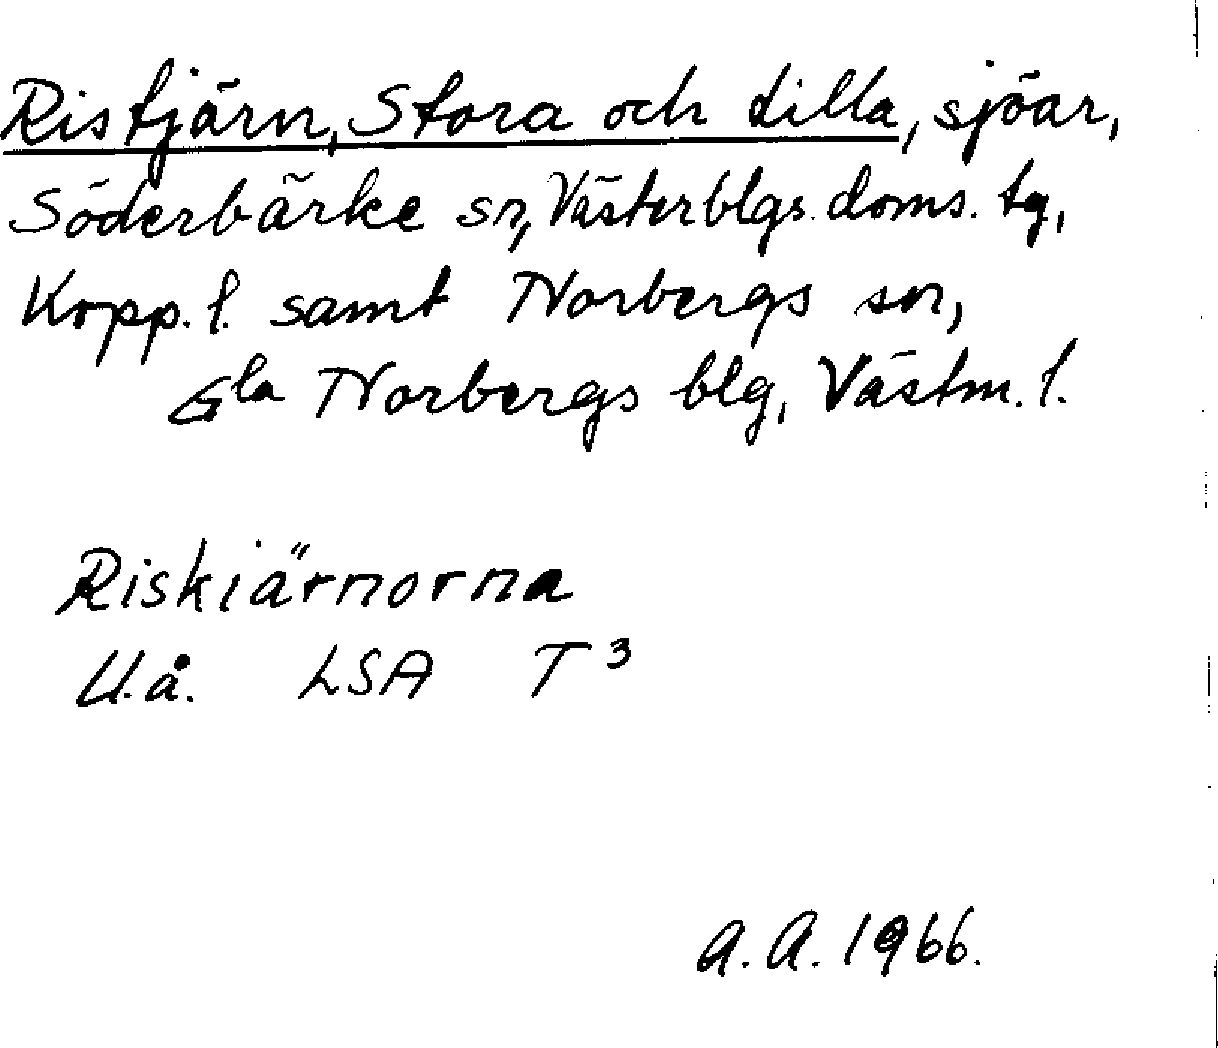 Ristjärn, Stora och Lilla, sjöar,
Söderbärke sn, Västerblgs. doms. tg,
Kopp. l. samt Norbergs sn,
Gla Norbergs blg, Västm. l.
Riskiärnorna
U.å. LSA T³
A.A. 1966.